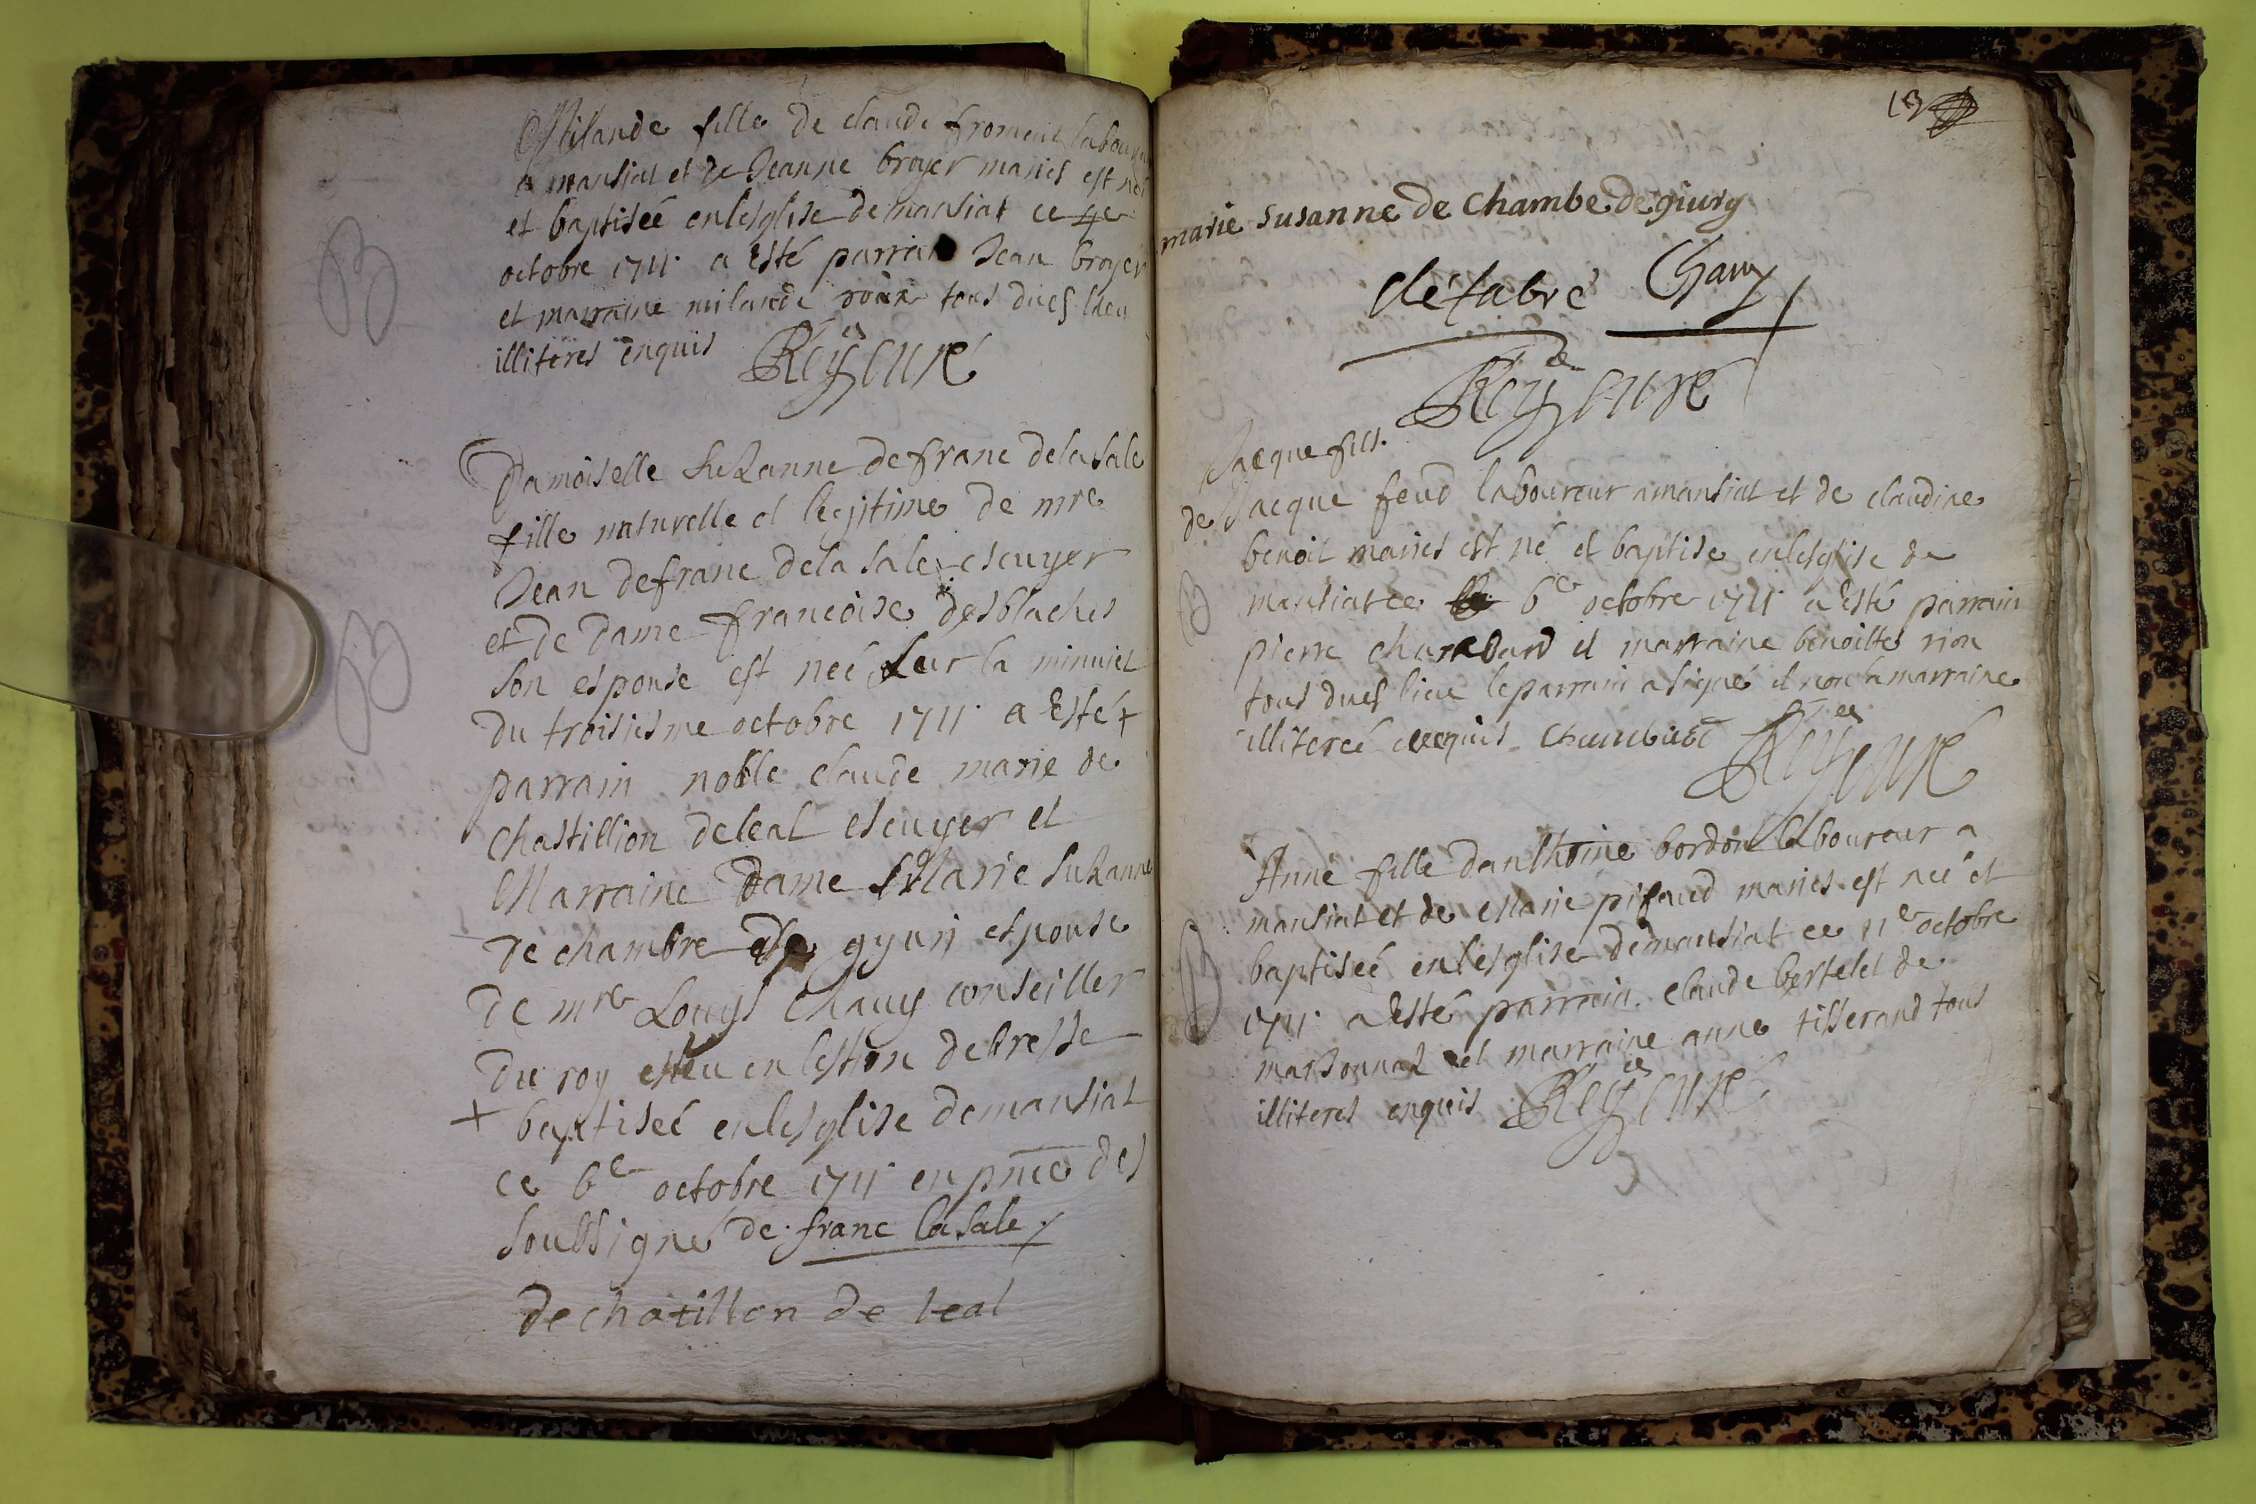 B
Milande fille de claude froment laboureur
a mansiat et de Jeanne broyer mariés est née
et baptiseé enlesglise de mansiat ce 4e
octobre 1711 a esté parrain Jean broyer
et marraine milande tous dudt lieu
illiteres enquis Rey curé
B
Damoiselle suzanne defranc delasale
fille naturelle et legitime de mre
Jean defranc dela sale escuyer
et de Dame francoise desblaches
son espouse est neé sur la minuict
du troisiesme octobre 1711 a esté +
parrain noble claude marie de
chastillion deleal escuyer et
Marraine Dame Marie suzanne
de chambre de gyuri espouse
de mre Louys chauy conseiller
du roy esleu en lestion debresse
+ baptiseé enlesglise demansiat
ce 6e octobre 1711 en pnce des
soussigné de franc lasale
de chatillon de leal
13
marie susanne de chambe de giury
défabre Chauy
Rey curé
Jacque fils
de Jacque feud laboureur amansiat et de claudine
benoit mariés est né et baptise enlesglise de
B
mansiat ce 6e octobre 1711 a esté parrain
pierre chambard et marraine benoiste rion
tous dudt lieu leparrain asigné et non lamarraine
illitereé enquis Chambard Rey curé
Anne fille danthoine bordon laboureur a
mansiat et de Marie pifaud mariés est neé et
B
baptiseé enlesglise demansiat ce 11e octobre
1711 a esté parrain claude bertelet de
marsonnas et marraine anne tisserand tous
illiteres enquis Rey curé